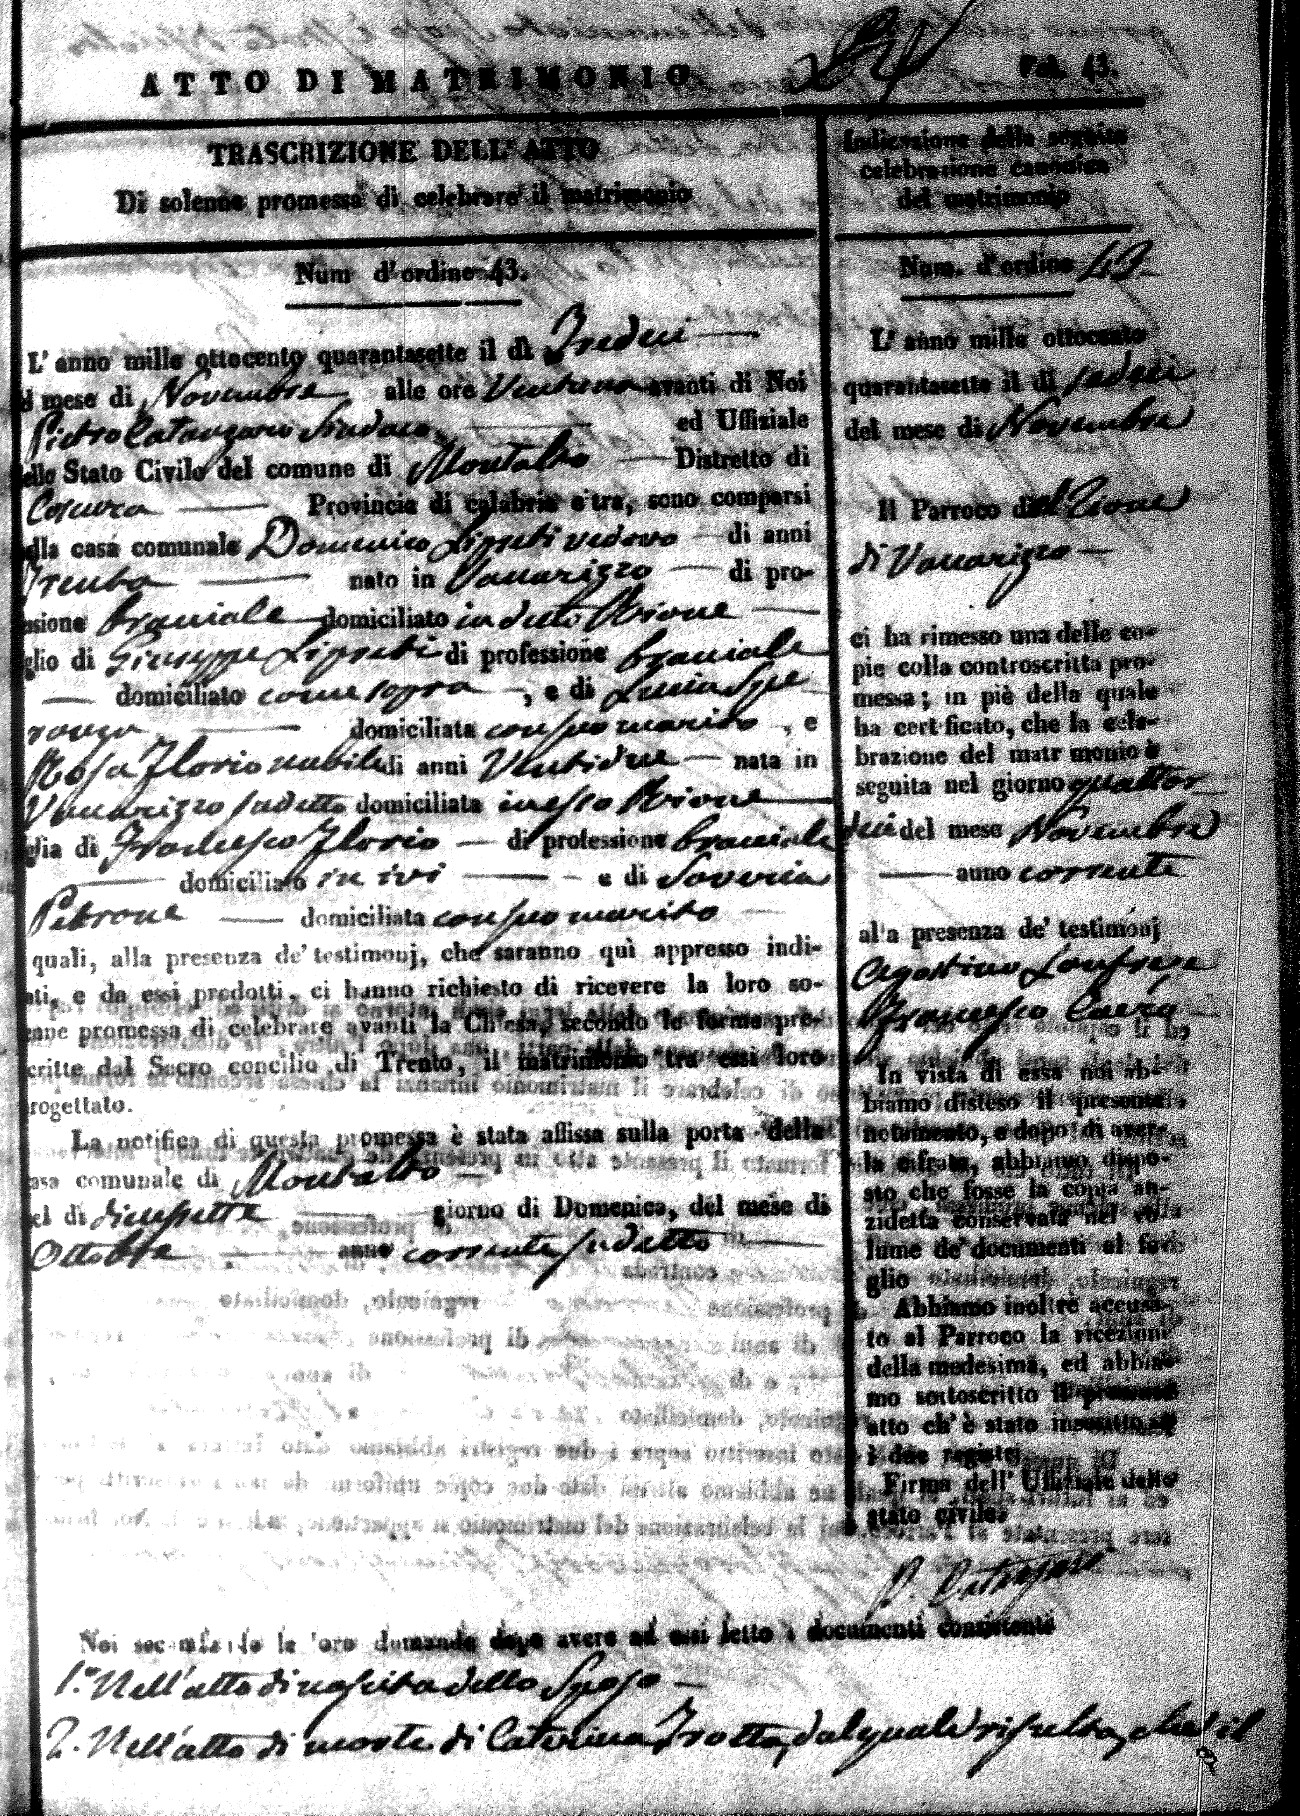 ATTO DI MATRIMONIO
Fol. 43.
TRASCRIZIONE DELL' ATTO
Di solenne promessa di celebrare il matrimonio
Num d'ordine 43.
L' anno mille ottocento quarantasette il dì Tredeci
del mese di Novembre alle ore Ventuna avanti di Noi
Pietro Catanzaro Sindaco ed Uffiziale
dello Stato Civile del comune di Montalto Distretto di
Cosenza Provincia di calabria citra, sono comparsi
nella casa comunale Domenico Lipreti vedovo di anni
Trenta nato in Vaccarizzo di pro-
fessione bracciale domiciliato in detto Rione
figlio di Giuseppe Lipreti di professione bracciale
domiciliato come sopra , e di Lucia Spe
ranza domiciliata con suo marito , e
Rosa Florio nubile di anni Ventidue nata in
Vaccarizzo sudetto domiciliata in esso Rione
figlia di Francesco Florio di professione bracciale
domiciliato in ivi e di Soveria
Petrone domiciliata con suo marito
quali, alla presenza de' testimonj, che saranno quì appresso indi-
cati, e da essi prodotti, ci hanno richiesto di ricevere la loro so-
lenne promessa di celebrare avanti la Chiesa, secondo le forme pre-
scritte dal Sacro concilio di Trento, il matrimonio tra essi loro
progettato.
La notifica di questa promessa è stata affissa sulla porta della
casa comunale di Montalto
nel dì dicessette giorno di Domenica, del mese di
Ottobre anno corrente sudetto
Indicazione della seguita
celebrazione canonica
del matrimonio
Num. d'ordine 43
L' anno mille ottocento
quarantasette il dì sedeci
del mese di Novembre
Il Parroco del Rione
di Vaccarizzo
ci ha rimesso una delle co-
pie colla controscritta pro-
messa; in piè della quale
ha certificato, che la cele-
brazione del matrimonio è
seguita nel giorno quattor
deci del mese Novembre
anno corrente
alla presenza de' testimonj
Agostino Lanfrese
Francesco
In vista di essa noi ab-
biamo disteso il presente
notamento, e dopo di aver-
la cifrata, abbiamo dispo-
sto che fosse la copia an-
zidetta conservata nel vo-
lume de' documenti al fo-
glio
Abbiamo inoltre accusa-
to al Parroco la ricezione
della medesima, ed abbia-
mo sottoscritto il presente
atto ch' è stato inscritto su
i due registri
Firma dell' Uffiziale dello
stato civile
P. Catanzaro
Noi secondando la loro domanda dopo avere ad essi letto i documenti consistenti
1.º Nell'atto di nascita dello Sposo
2. Nell'atto di morte di Caterina Trotta, dal quale risulta, che il